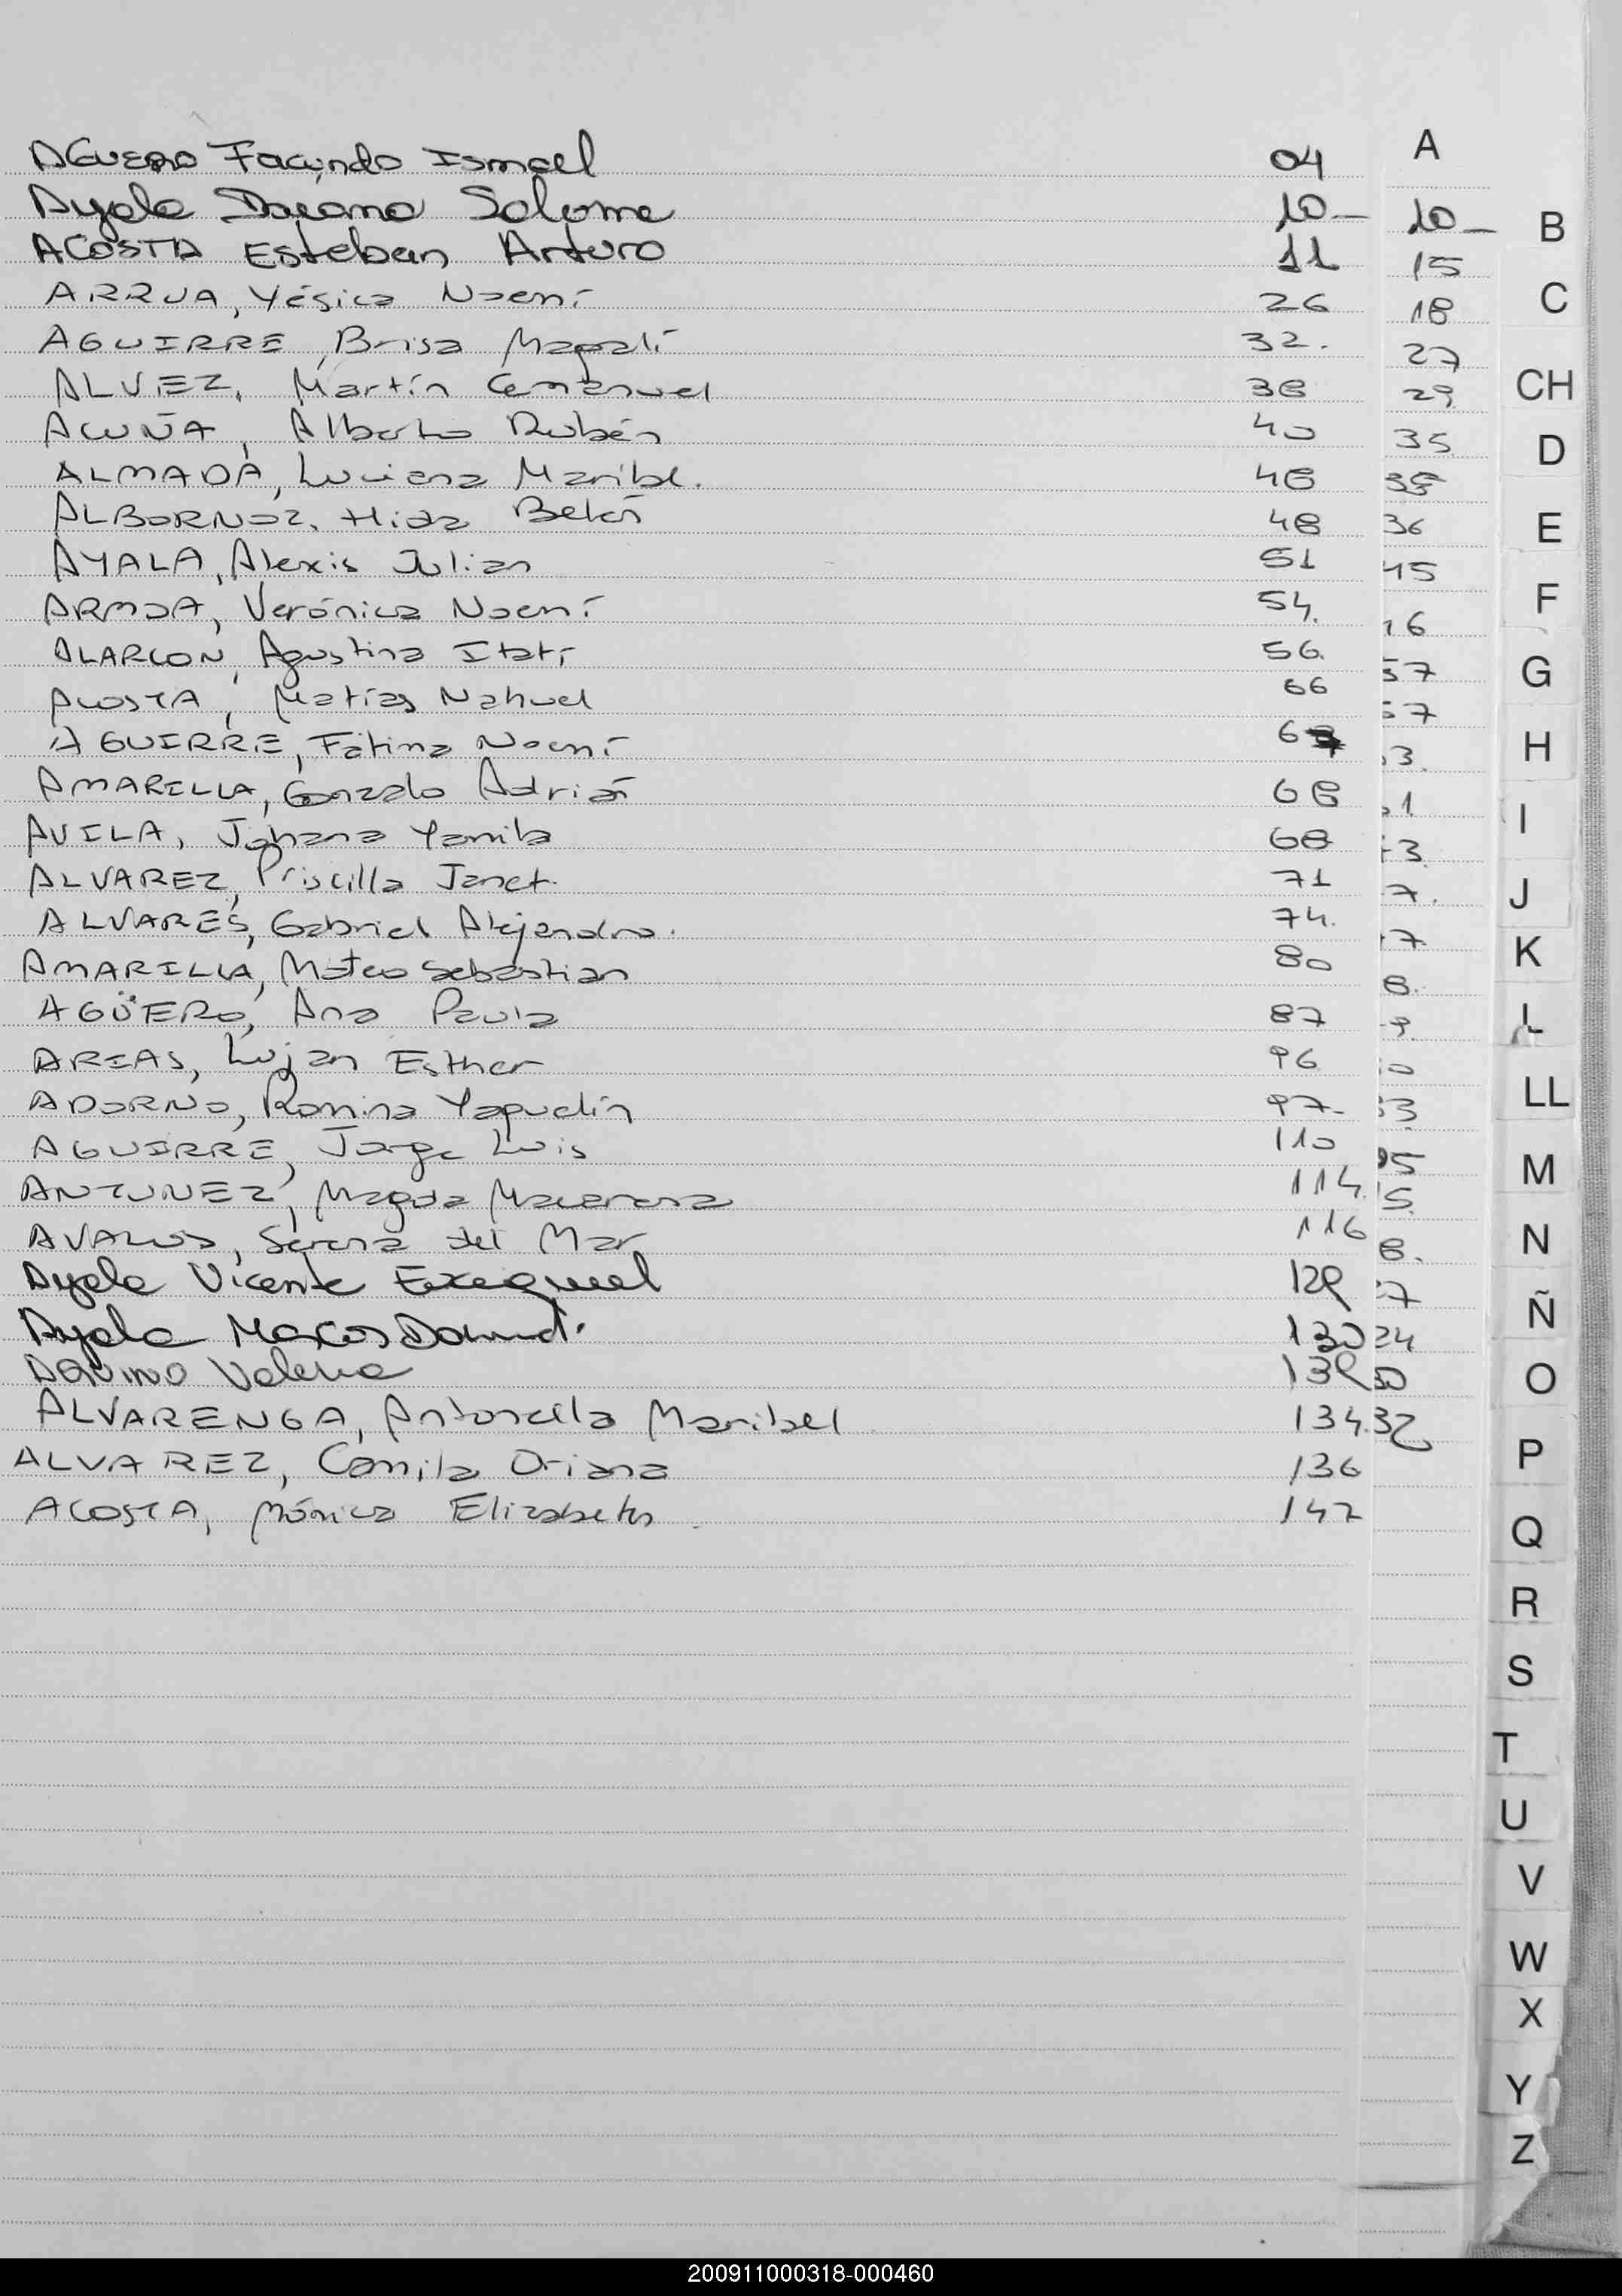 A
AGUERO Facundo Ismael 04
Ayala Daiana Salome 10 10
ACOSTA Esteban Arturo 11 15
ARRUA, Yésica Noemí 26 18
AGUIRRE, Brisa Magalí 32. 27
ALVEZ, Martín Emanuel 38 29
ACUÑA, Alberto Rubén 40 35
ALMADA, Luciana Maribel. 48
ALBORNOZ, Belén 48 36
AYALA, Alexis Julian 51 45
ARMOA, Verónica Noemí 54. 16
ALARCON, Agustina Itatí 56. 57
ACOSTA, Matías Nahuel 66 57
AGUIRRE, Fátima Noemí 3.
AMARILLA, Gonzalo Adrián 68 1
AVILA, Johana Yamila 68 3.
ALVAREZ, Priscilla Janet. 71 7.
ALVARES, Gabriel Alejandro. 74. 7
AMARILLA, Mateo Sebastian 80 8.
AGÜERO, Ana Paula 87 9.
ARIAS, Lujan Esther 96 0
ADORNO, Romina Yaquelín 97- 3
AGUIRRE, Jorge Luis 110 95
ANTUNEZ, Magda Macarena 114. 5.
AVALOS, Serena del Mar 116 8.
Ayala Vicente Exequiel 129 7
Ayala Marcos David. 130 24
AQUINO Valeria 30
ALVARENGA, Antonella Maribel 134. 32
ALVAREZ, Camila Oriana 136
ACOSTA, Mónica Elizabeth. 147
B
C
CH
D
E
F
G
H
I
J
K
L
LL
M
N
Ñ
O
P
Q
R
S
T
U
V
W
X
Y
Z
200911000318-000460